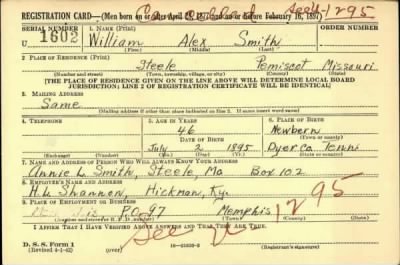 REGISTRATION CARD—(Men born on or after April 28, 1877 and on or before February 16, 1897)
SERIAL NUMBER
1. NAME (Print)
ORDER NUMBER
U 1602
William Alex Smith
(First) (Middle) (Last)
2. PLACE OF RESIDENCE (Print)
Steele Pemiscot Missouri
(Number and street) (Town, township, village, or city) (County) (State)
[THE PLACE OF RESIDENCE GIVEN ON THE LINE ABOVE WILL DETERMINE LOCAL BOARD
JURISDICTION; LINE 2 OF REGISTRATION CERTIFICATE WILL BE IDENTICAL]
3. MAILING ADDRESS
Same
(Mailing address if other than place indicated on line 2. If same insert word same)
4. TELEPHONE
5. AGE IN YEARS
6. PLACE OF BIRTH
46
Newbern
DATE OF BIRTH
(Town or county)
July 2 1895
Dyer Co Tenn
(Exchange) (Number)
(Mo.) (Day) (Yr.)
(State or country)
7. NAME AND ADDRESS OF PERSON WHO WILL ALWAYS KNOW YOUR ADDRESS
Annie L Smith, Steele, Mo Box 102
8. EMPLOYER'S NAME AND ADDRESS
H. L. Shannon, Hickman, Ky.
9. PLACE OF EMPLOYMENT OR BUSINESS
P.O. 97 Memphis
(Town) (County) (State)
I AFFIRM THAT I HAVE VERIFIED ABOVE ANSWERS AND THAT THEY ARE TRUE.
See U 1295
D. S. S. Form 1
(Revised 4-1-42)
(Registrant's signature)